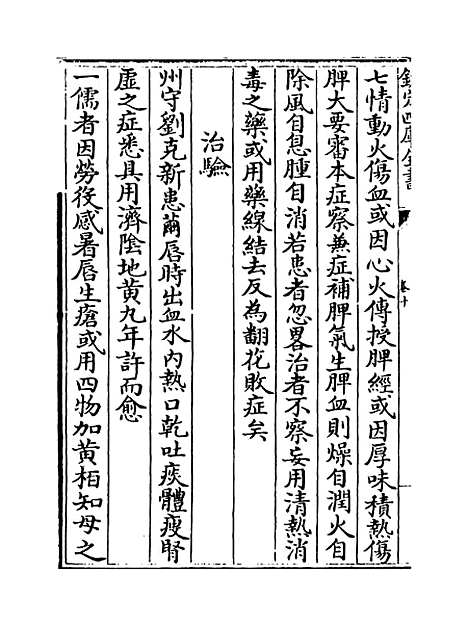 欽定四庫全書
卷十
七情動火傷血或因心火傳授脾經或因厚味積熱傷
脾大要審本症察兼症補脾氣生脾血則燥自潤火自
除風自息腫自消若患者忽畧治者不察妄用清熱消
毒之藥或用藥線結去反為翻花敗症矣
治驗
州守劉克新患繭唇時出血水內熱口乾吐痰體瘦腎
虛之症悉具用濟陰地黃九年許而愈
一儒者因勞役感暑唇生瘡或用四物加黃栢知母之